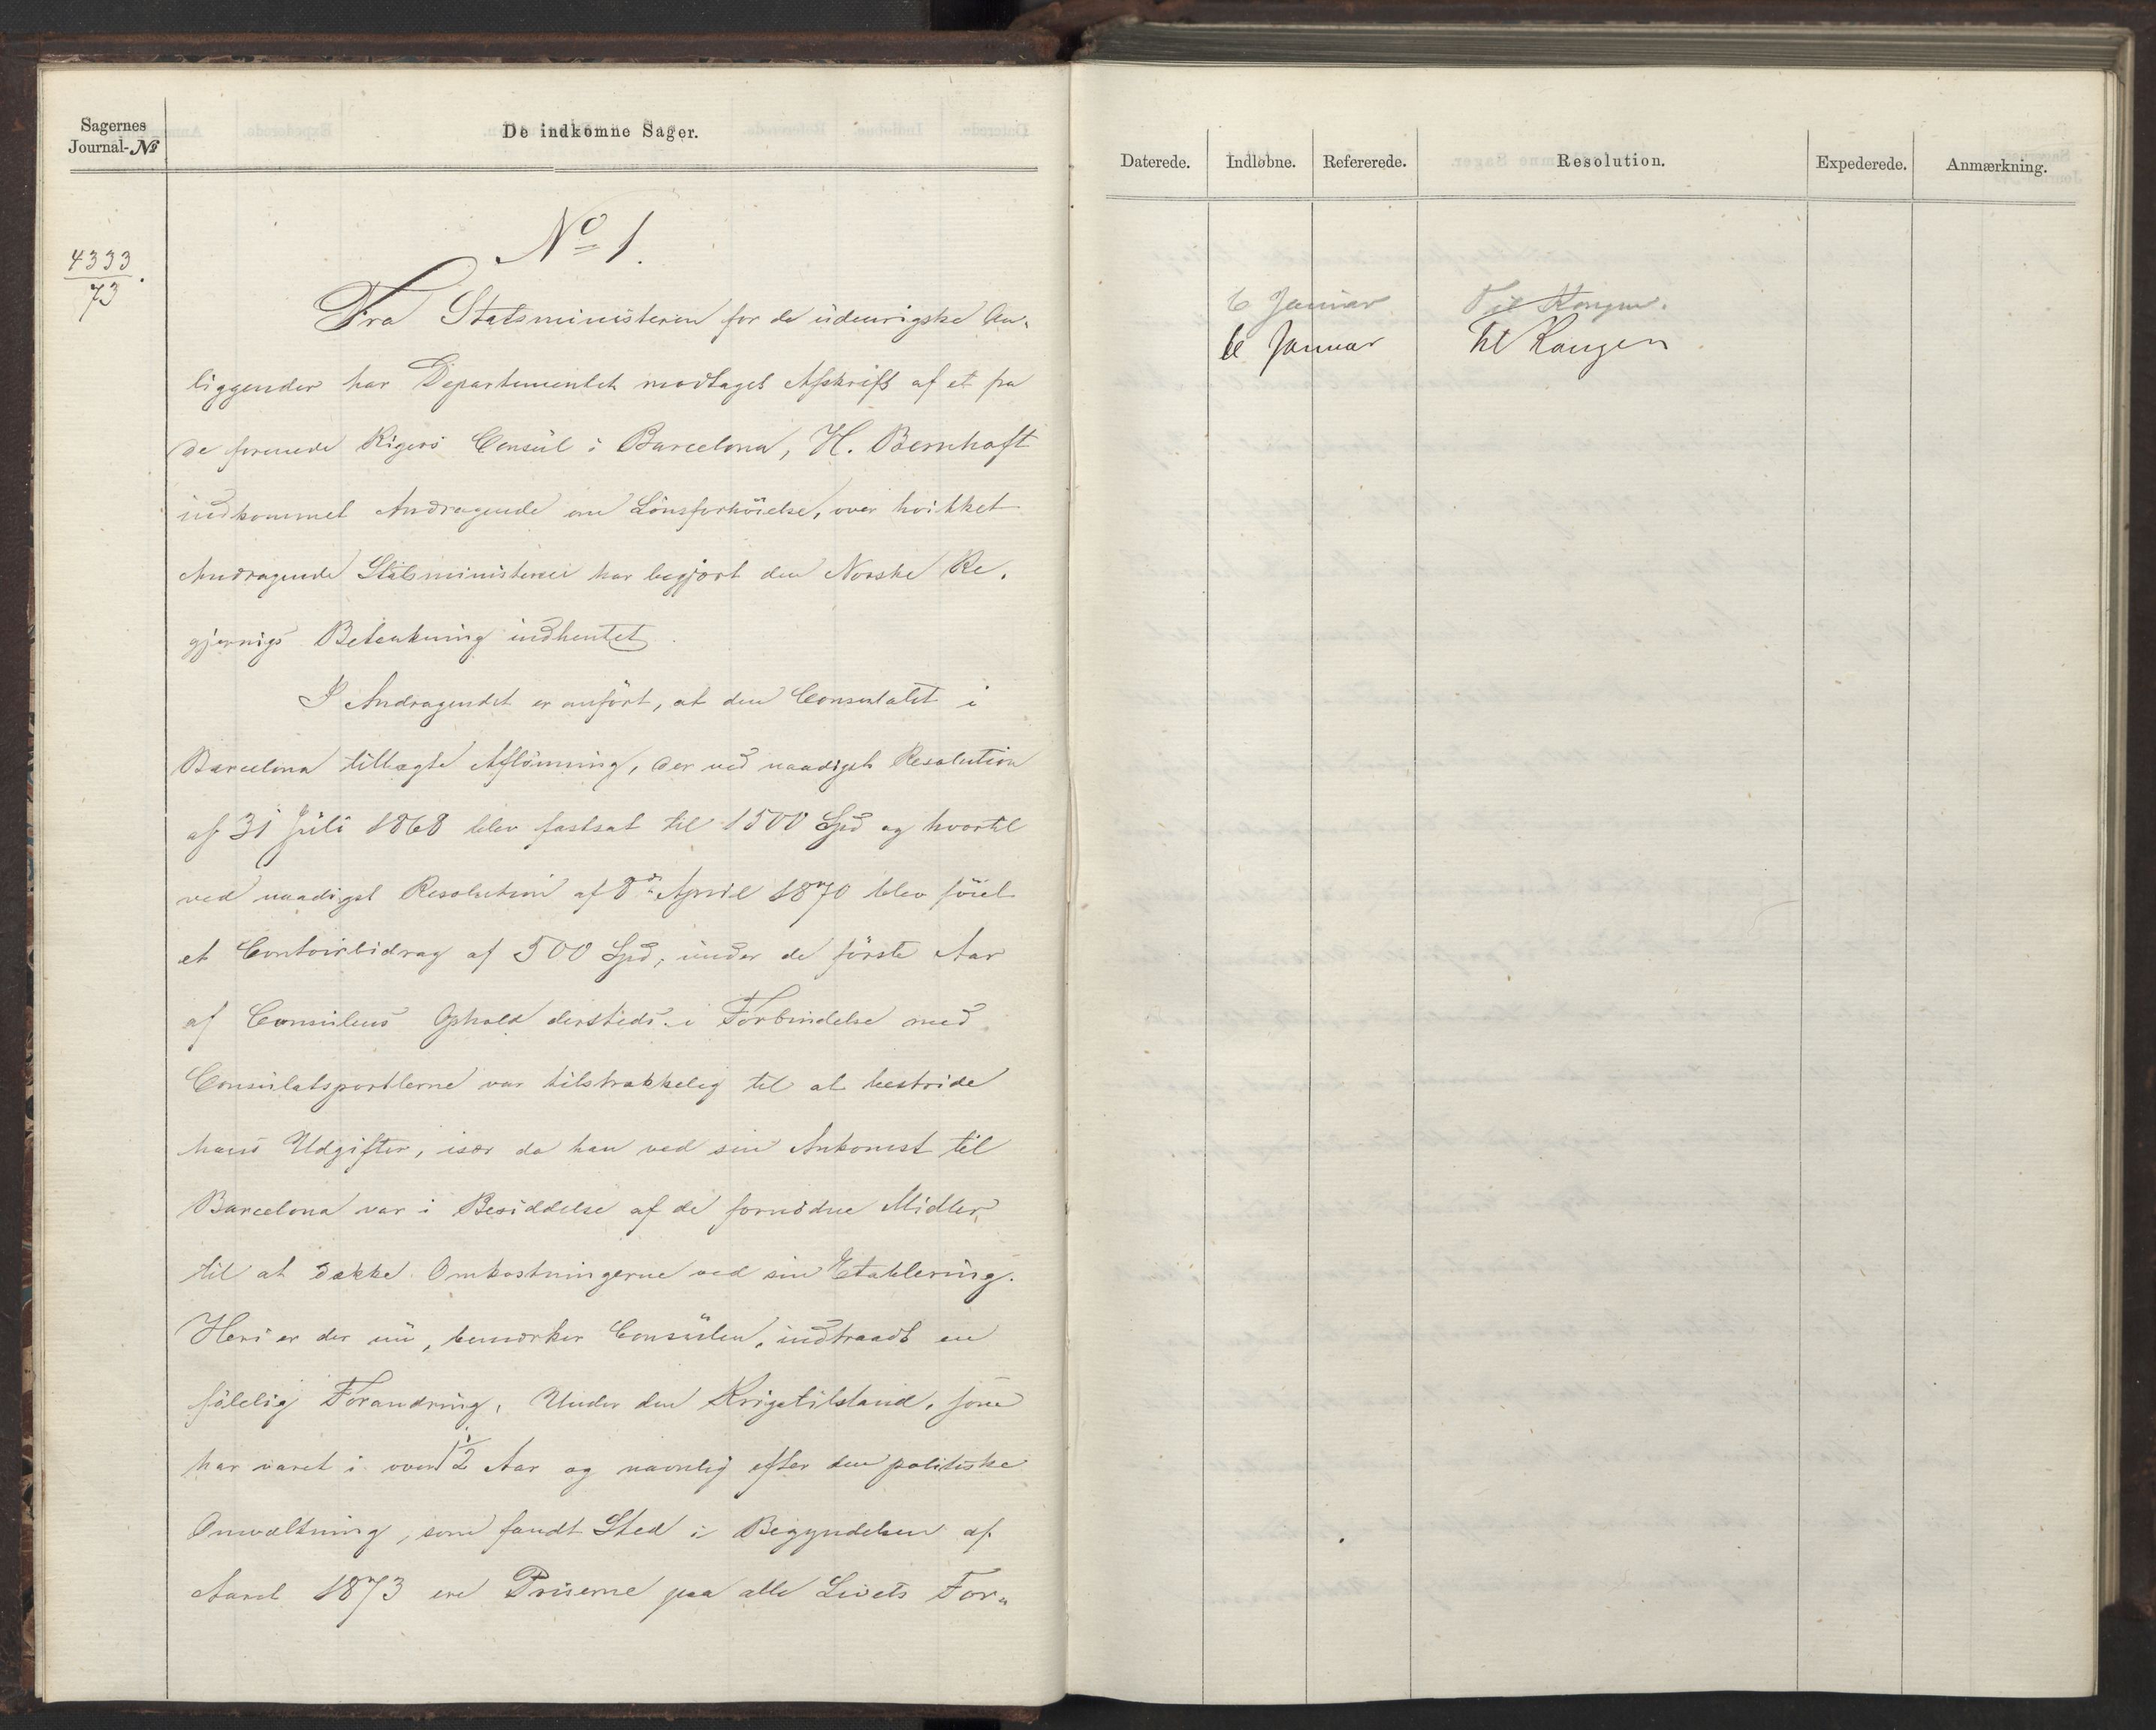 Sagernes
Journal-№
De indkomne Sager.
4333
73
No 1.
Fra Statsministeren for de udenrigske An-
liggender har Departementet modtaget Afskrift af et fra
de forenede Rigers Consul i Barcelona, H. Bernhoft
indkommet Andragende om Lönsforhöielse, over hvikket
Andragende Statsministeren har begjært den Norske Re-
gjernigs Betenkning indhentet.
I Andragendet er anfört, at den Consulatet i
Barcelona tillagte Aflönning, der ved naadigst Resolution
af 31 Juli 1868 blev fastsat til 1500 Spd og hvortil
ved naadigst Resolution af 8de April 1870 blev föiet
et Contoirbidrag af 500 Spd, under de förste Aar
af Consulens Ophold dersteds i Forbindelse med
Consulatsportlerne var tilstrækkelig til at bestride
hans Udgifter, især da han ved sin Ankomst til
Barcelona var i Besiddelse af de fornödne Midler
til at dække Omkostningerne ved sin Etablering.
Heri er der nu, bemærker Consulen, indtraadt en
fölelig Forandring. Under den Krigstilstand, som
har varet i over 1 1/2 Aar og navnlig efter den politiske
Omvæltning, som fandt Sted i Begyndelsen af
Aaret 1873 ere Priserne paa alle Livets For-
Daterede. Indløbne. Refererede. Resolution. Expederede. Anmærkning.
6 Januar Til Kongen.
6 Januar Til Kongen